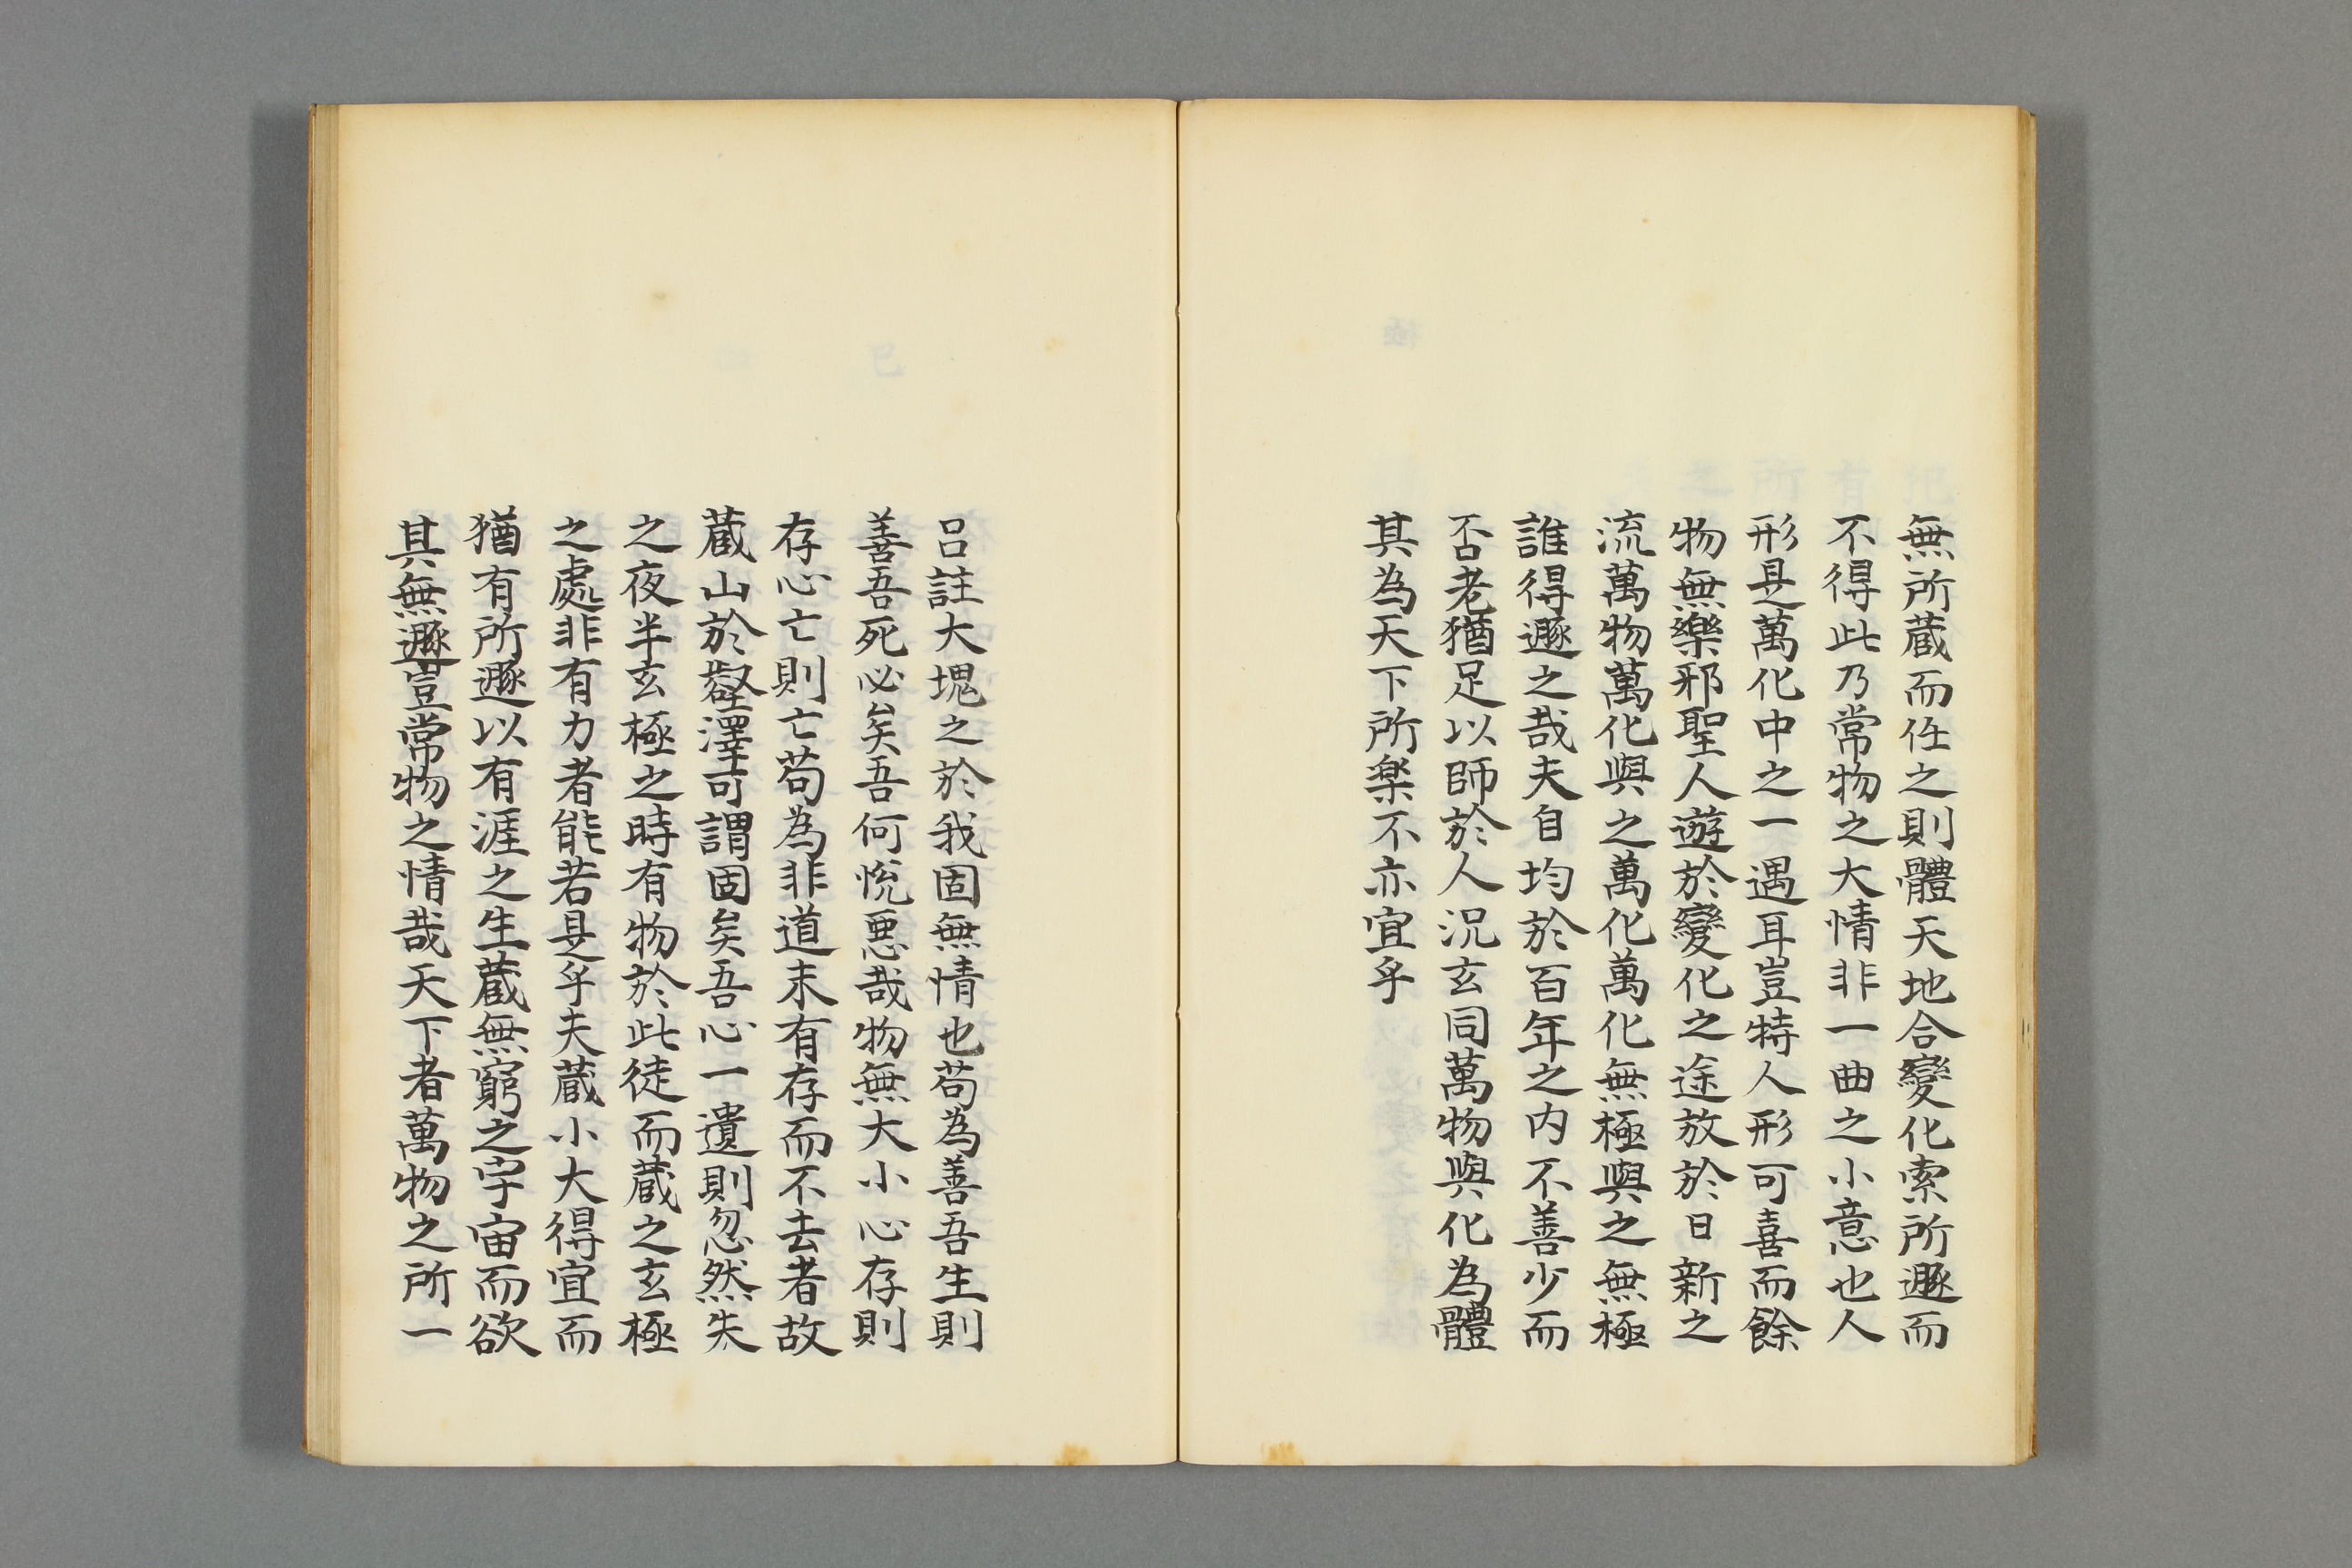 無所蔵而任之則體天地合變化索所遯而
不得此乃常物之大情非一曲之小意也人
形是萬化中之一遇耳豈特人形可喜而餘
物無樂邪聖人遊於變化之途放於日新之
流萬物萬化與之萬化萬化無極與之無極
誰得遯之哉夫自均於百年之内不善少而
否老猶足以師於人況玄同萬物與化為體
其為天下所樂不亦宜乎
呂註大塊之於我固無情也苟為善吾生則
善吾死必矣吾何悅惡哉物無大小心存則
存心亡則亡苟為非道未有存而不去者故
蔵山於壑澤可謂固矣吾心一遺則忽然失
之夜半玄極之時有物於此徒而蔵之玄極
之處非有力者能若是乎夫蔵小大得宜而
猶有所遯以有涯之生蔵無窮之宇宙而欲
其無遯豈常物之情哉天下者萬物之所一